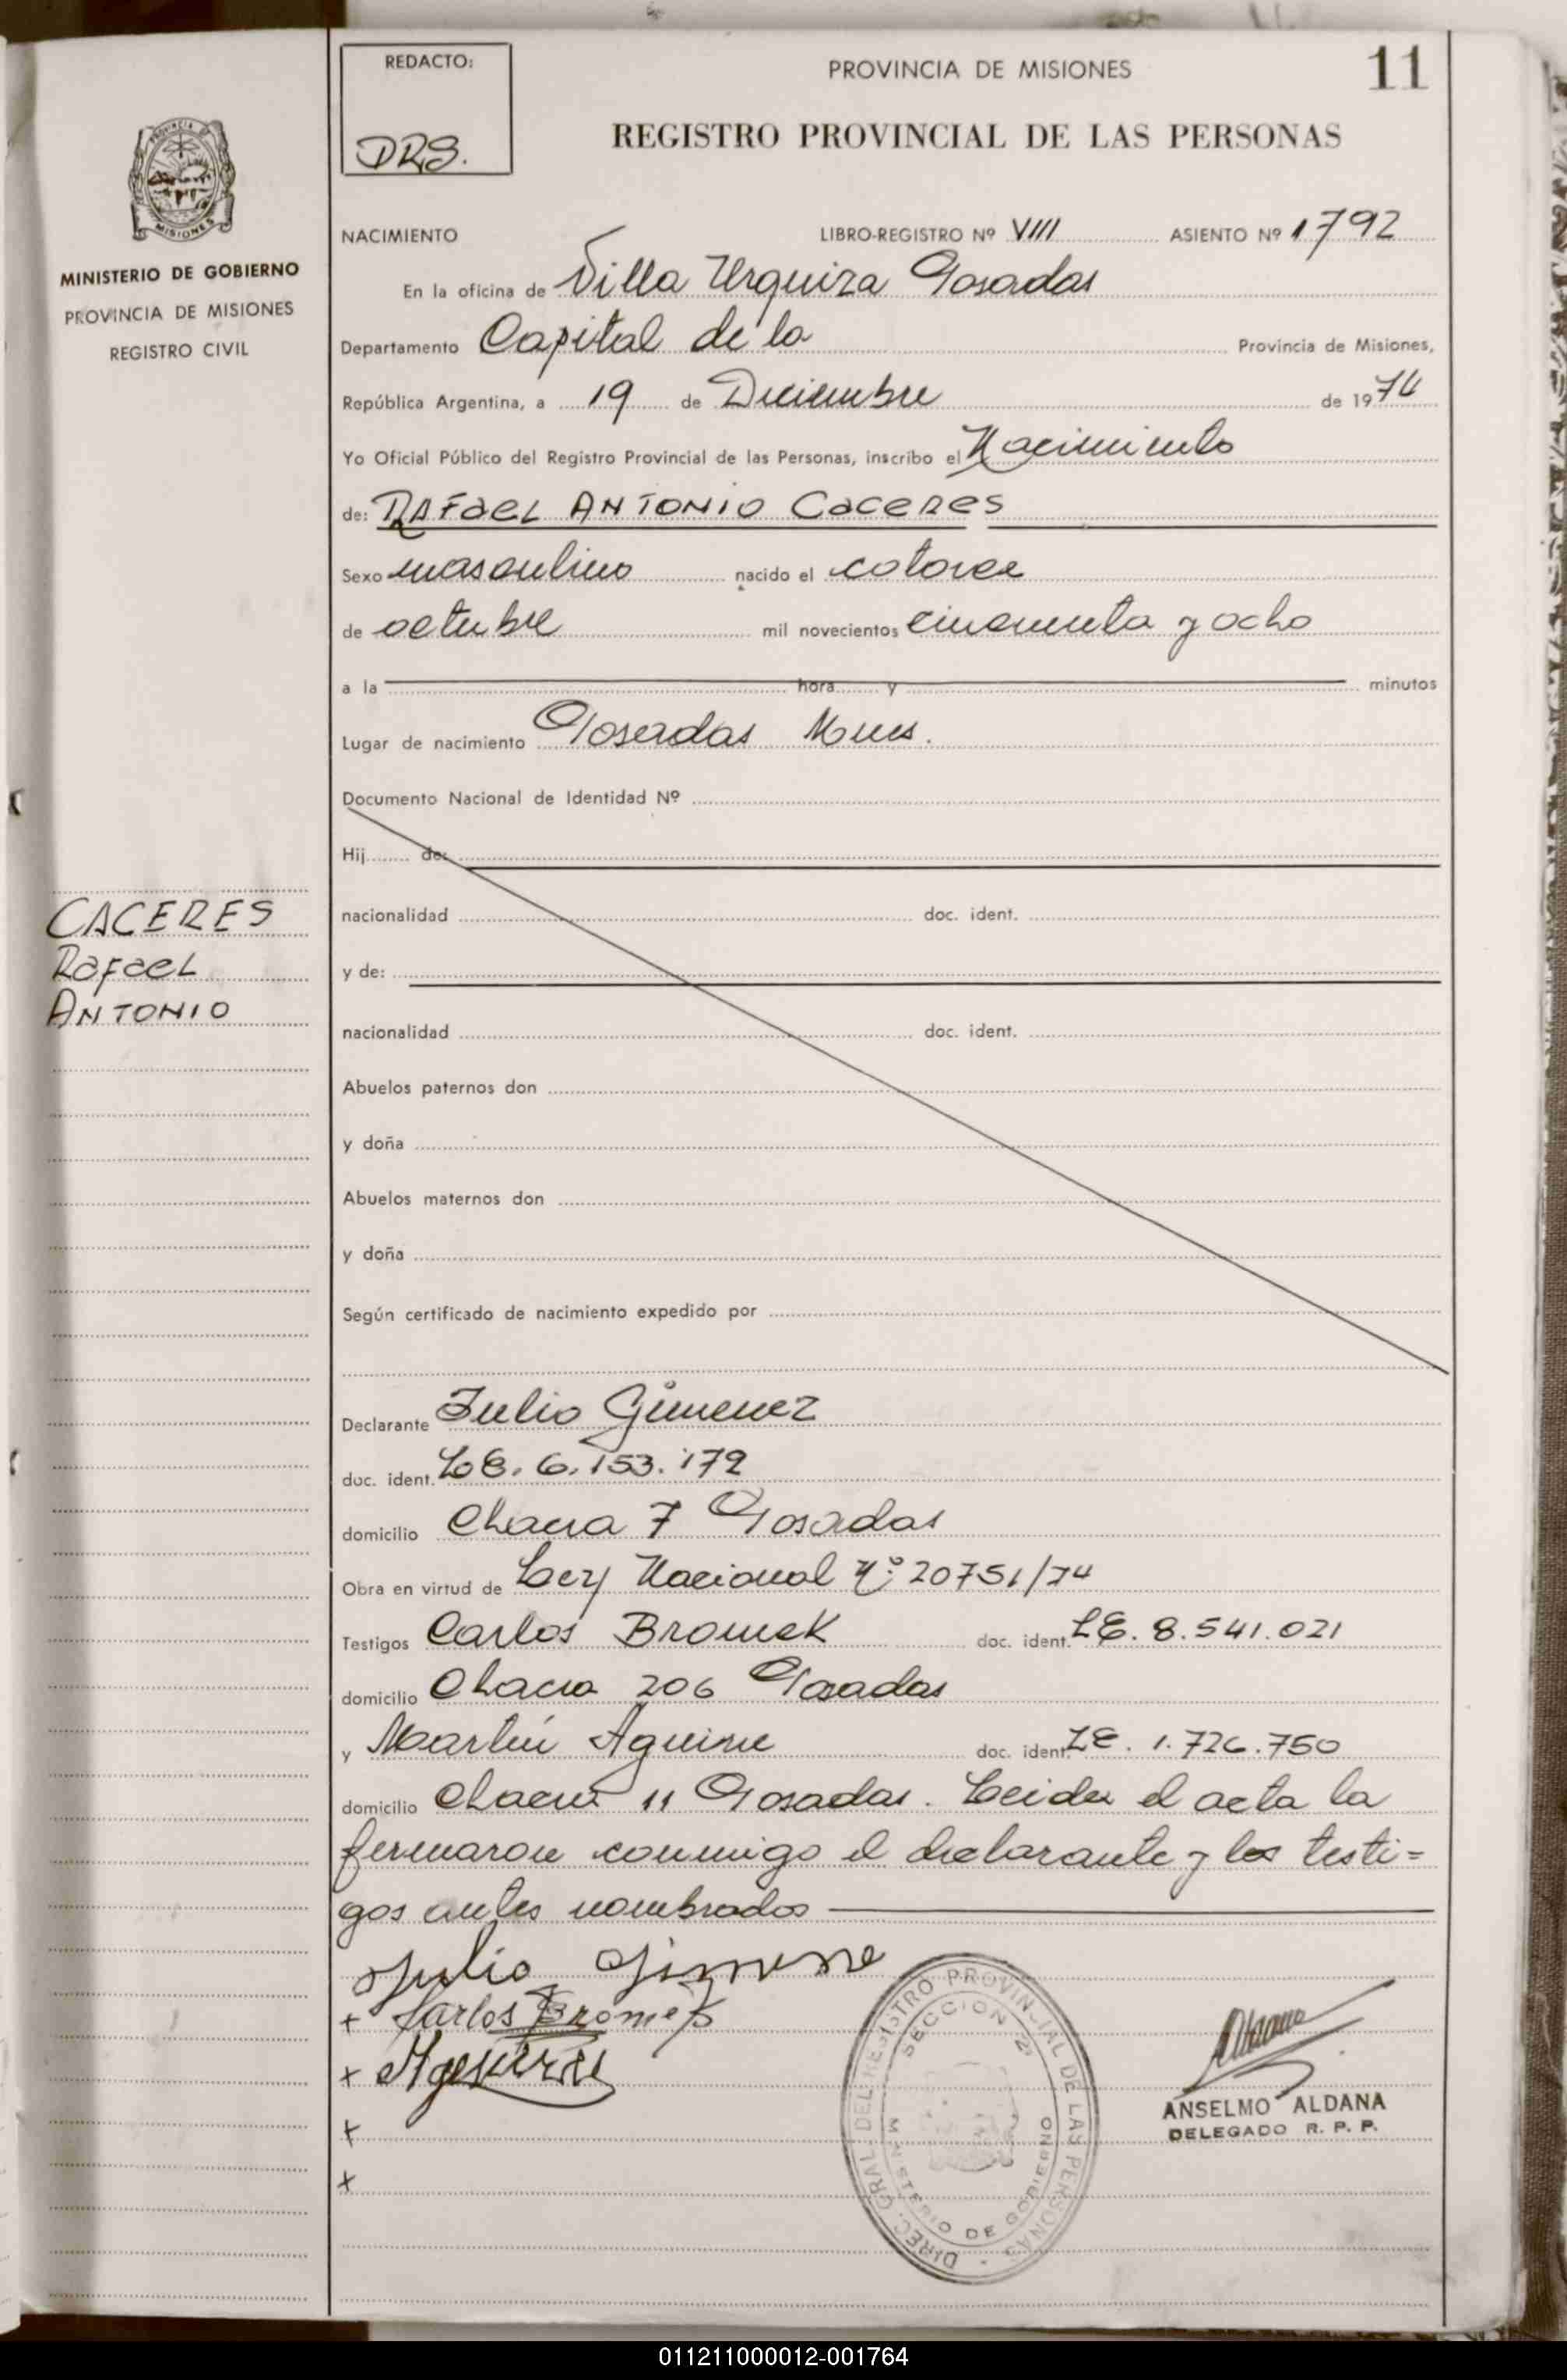 REDACTO:
DRS.
PROVINCIA DE MISIONES
11
REGISTRO PROVINCIAL DE LAS PERSONAS
PROVINCIA DE
MISIONES
MINISTERIO DE GOBIERNO
PROVINCIA DE MISIONES
REGISTRO CIVIL
CACERES
Rafael
ANTONIO
NACIMIENTO LIBRO-REGISTRO Nº VIII ASIENTO Nº 1792
En la oficina de Villa Urquiza Posadas
Departamento Capital de la Provincia de Misiones,
República Argentina, a 19 de Diciembre de 1974
Yo Oficial Público del Registro Provincial de las Personas, inscribo el Nacimiento
de: RAFAEL ANTONIO CACERES
Sexo masculino nacido el catorce
de octubre mil novecientos cincuenta y ocho
a la hora y minutos
Lugar de nacimiento Posadas Mnes.
Documento Nacional de Identidad Nº
Hij de:
nacionalidad doc. ident.
y de:
nacionalidad doc. ident.
Abuelos paternos don
y doña
Abuelos maternos don
y doña
Según certificado de nacimiento expedido por
Declarante Julio Gimenez
doc. ident. LE. 6.153.172
domicilio Chacra 7 Posadas
Obra en virtud de Ley Nacional Nº 20751/74
Testigos Carlos Bromek doc. ident. LE. 8.541.021
domicilio Chacra 206 Posadas
y Martín Aguirre doc. ident. LE. 1.726.750
domicilio Chacra 11 Posadas. Leida el acta la
firmaron conmigo el declarante y los testi=
gos antes nombrados
Julio Gimene
+ Carlos Bromek
+ Aguirre
+
+
DIREC. GRAL. DEL REGISTRO PROVINCIAL DE LAS PERSONAS
SECCION 2ª
MINISTERIO DE GOBIERNO
ANSELMO ALDANA
DELEGADO R. P. P.
011211000012-001764